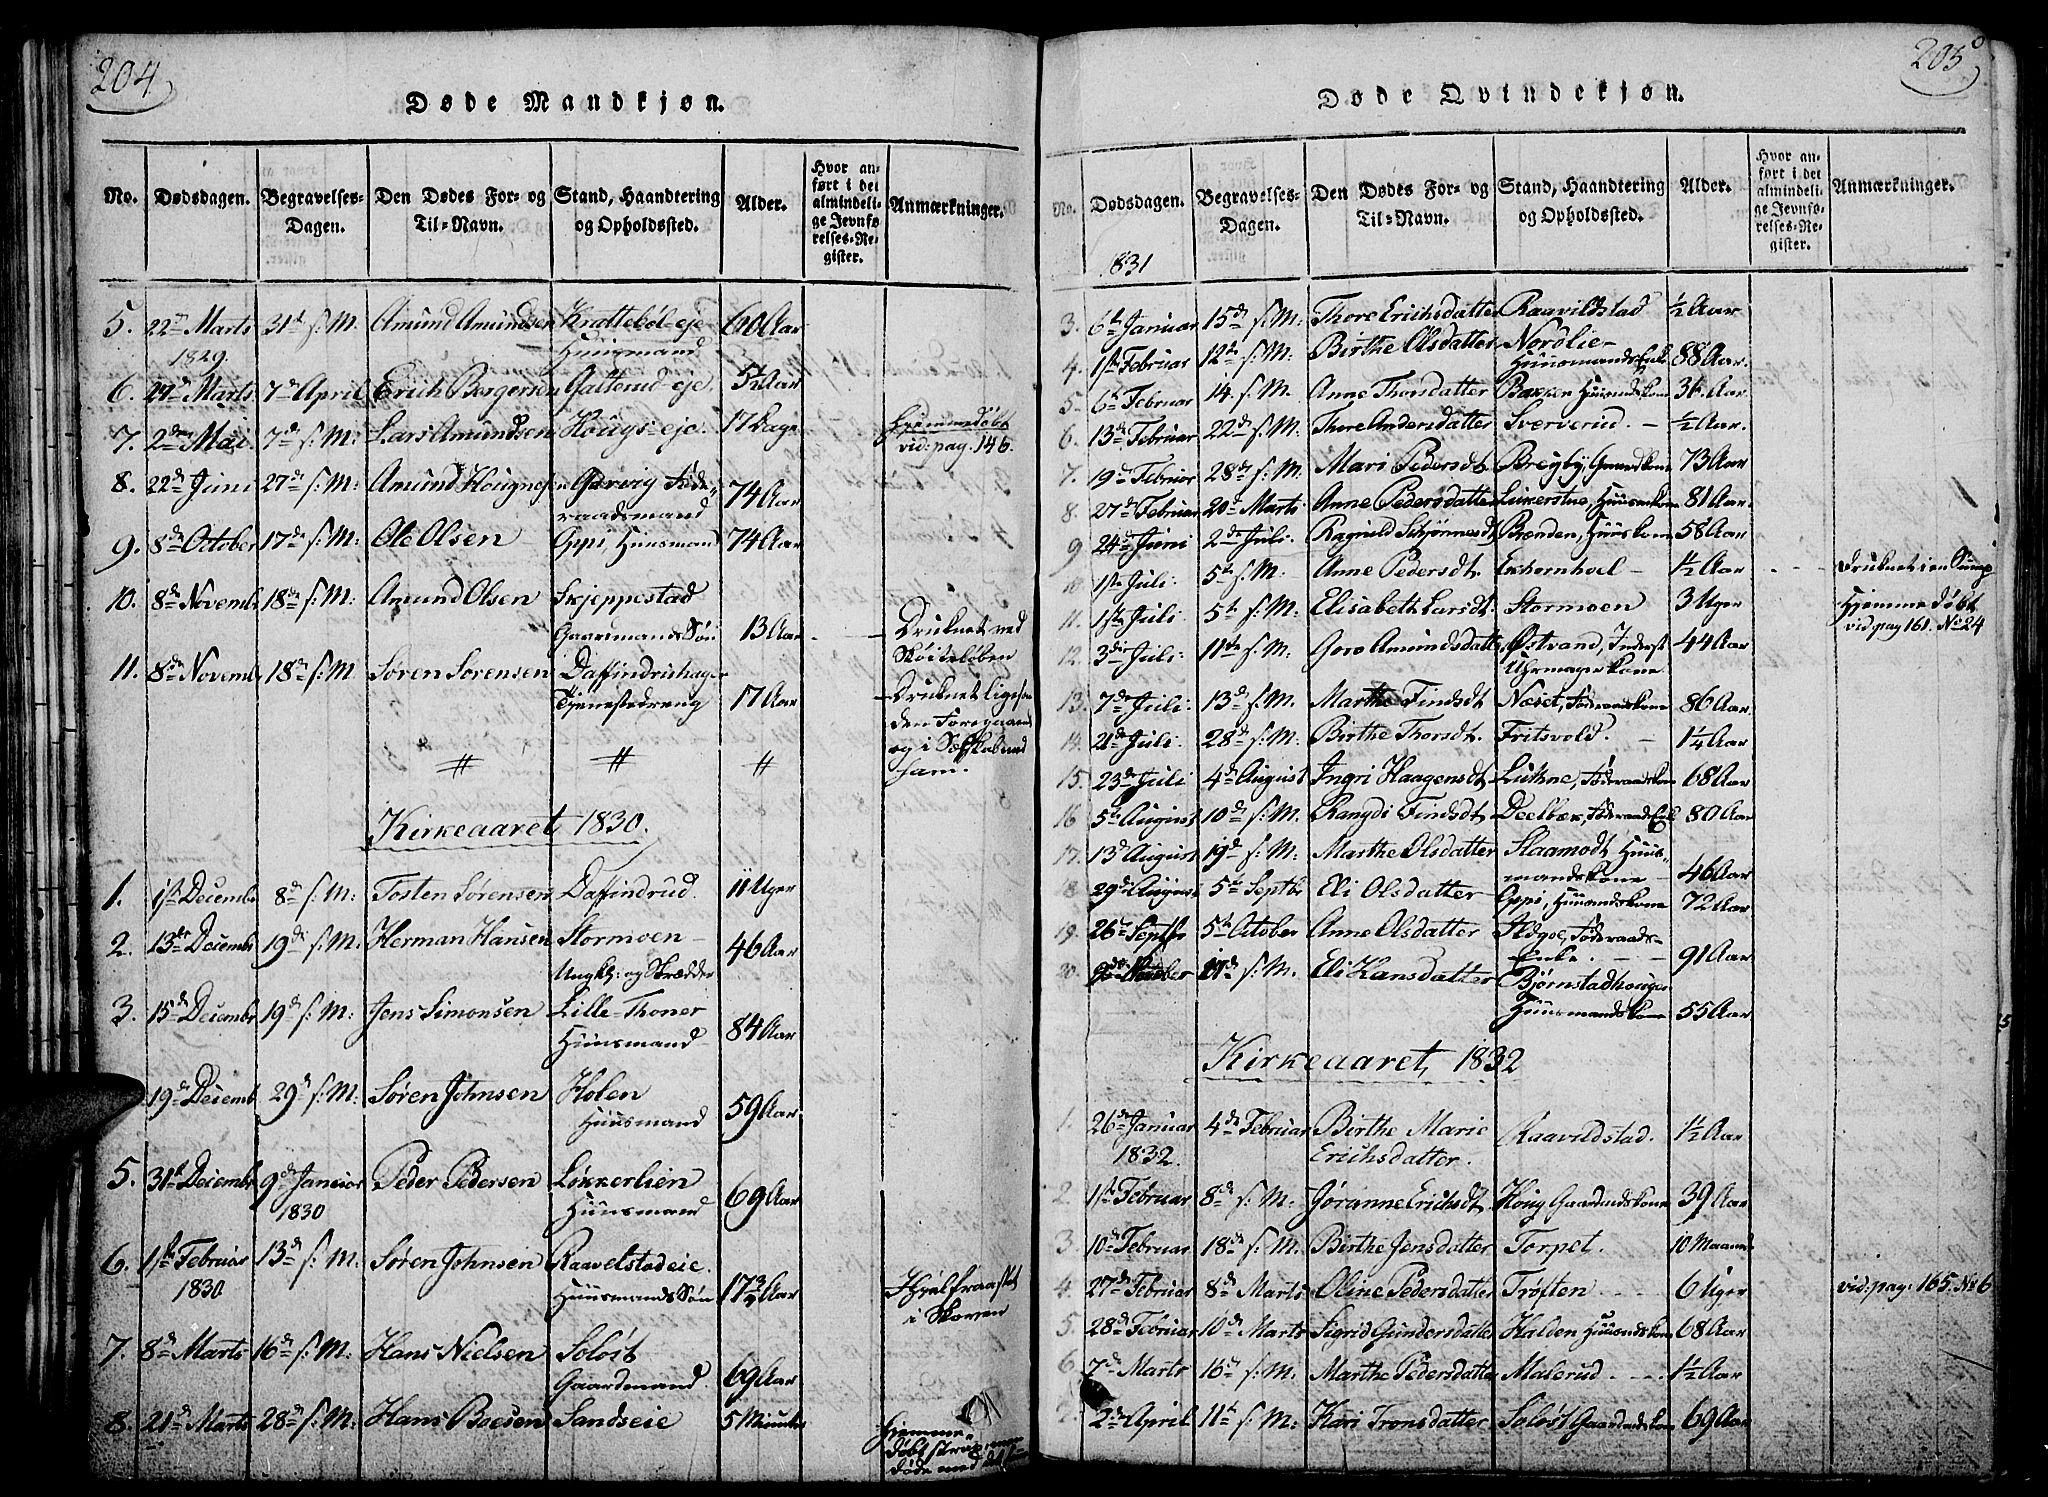 204
Døde Mandkjøn.
No. Dødsdagen. Begravelses-Dagen. Den Dødes For- og Til-Navn. Stand, Haandtering og Opholdssted. Alder. Hvor anført i det almindelige Jevnførelses-Register. Anmærkninger.
5. 22de Marts 31te s: M. Amund Amundsen Krattebøl-eje 60 Aar
1829. Huusmand
6. 27de Marts 7de April Erich Borgersen Galterud-eje 5½ Aar
7. 2den Mai 7de s: M: Lars Amundsen Hougs-eje 17 Dage Hjemmedøbt
vid: pag. 146.
8. 22de Juni 27de s: M: Amund Hougnesen Garvig Føde-
raadsmand 74 Aar
9. 8de October 17de s: M: Ole Olsen Oppi, Huusmand 74 Aar
10. 8de Novemb. 18de s: M: Amund Olsen Skjeppestad
Gaardmands Søn 13 Aar Druknet ved
Skøiteløben
11. 8de Novemb. 18de s: M Søren Sørensen Daffindrishagen
Tjenestedreng 17 Aar Druknet ligesom
den Foregaaende
og i Selskab med
ham.
Kirkeaaret 1830.
1. 1ste Decembr 8de s: M: Tosten Sørensen Daffindrud. 11 Uger
2. 13de Decembr 19de s: M: Herman Hansen Stormoen-
Ungkl: og Skrædder 46 Aar
3. 15de Decembr 19de s: M: Jens Simonsen Lille-Thoner
Huusmand 84 Aar
19de Decemb 29de s: M: Søren Johnsen Holen
Huusmand 59 Aar
5. 31te Decembr 9de Januar Peder Pedersen Løkkerlien
1830 Huusmand 69 Aar
6. 1ste Februar 13de s: M Søren Johnsen Raavelstadeie.
1830 Huusmands Søn 17¾ Aar Ihjelfraaset
i Skoven
7. 8de Marts 16de s: M: Hans Nielsen Soløst
Gaardmand. 69 Aar
8. 21de Marts 28de s: M: Hans Boesen Sandseie 5 Minuter Hjemme-
døbt strax
døde
205
Døde Qvindekjøn.
No. Dødsdagen. Begravelses-Dagen. Den Dødes For- og Til-Navn. Stand, Haandtering og Opholdssted. Alder. Hvor anført i det almindelige Jevnførelses-Register. Anmærkninger.
1831
3. 6te Januar 15de s: M: Thore Erichsdatter Raavildstad ½ Aar
4. 1ste Februar 12te s: M. Birthe Olsdatter Nordlie-
Huusmands Enke 88 Aar
5. 6te Februar 14. s: M. Anne Thorsdatter Bakken Huusmdskone 36 Aar.
6. 13de Februar 22de s: M: Thore Andersdatter Sververud. - ½ Aar.
7. 19de Februar 28de s: M: Mari Pedersdt Breyby, Gaardkone 73 Aar
8. 27de Februar 20de Marts Anne Pedersdatter Leikerstue, Huusmkone 81 Aar
9 24de Juni 2den Juli. Ragnild Schjønnesdt Brænden, Huuskone 58 Aar
10 1ste Juli: 5te s: M. Anne Pedersdt. Ekhornhoel - 1½ Aar Druknet i en Sump
11. 1ste Juli: 5te s: M: Elisabeth Larsdt. Stormoen 3 Uger Hjemmedøbt
vid: pag 161. No 24
12. 3die Juli: 11te s: M. Goro Amundsdatter Østvand, Inderst
Uhrmagerkone. 44 Aar
13. 7de Juli. 13de s: M. Marthe Findsdt Næset, Føderaadskone 86 Aar.
14. 21de Juli. 28de s: M: Birthe Thorsdt. Fritsvold. - 1¼ Aar
15. 23de Juli 4de August Ingri Haagensdt Luthne, Føderaadskone 68 Aar
16 5te August 10de s: M: Rangdi Findsdt, Deelbek, Føderaads Enke 80 Aar
17. 13de August 19de s: M: Marthe Olsdatter Slaamodt Huus-
mandskone 46 Aar
18 29de August 5te Septbr Eli Olsdatter Oppi, Huusmandskone 72 Aar
19. 26de Septbr 5te October Anne Olsdatter Føderaads-
Enke. 91 Aar
20. 17de s: M. Eli Hansdatter Bjørnstadhougen
Huusmandskone 55 Aar
Kirkeaaret, 1832
1. 26de Januar 4de Februar Birthe Marie Raavildstad. 1½ Aar
1832. Erichsdatter.
2. 1ste Februar 8de s: M: Joranne Erichsdt. Houg Gaardmdskone 39 Aar
3. 10de Februar 18de s: M: Birthe Jensdatter Torpet. 10 Maaned
4. 27de Februar 8de Marts Oline Pedersdatter Trøften 6 Uger vid: pag: 165. No 6
5. 28de Februar 10de Marts Sigrid Gundersdatter Halden Huusmdkone 68 Aar
6. 7de Marts 16de s: M: Marthe Pedersdatter Maserud 1½ Aar
7. 2den April 11te s: M: Kari Tronsdatter Soløst Gaardmdskone 69 Aar